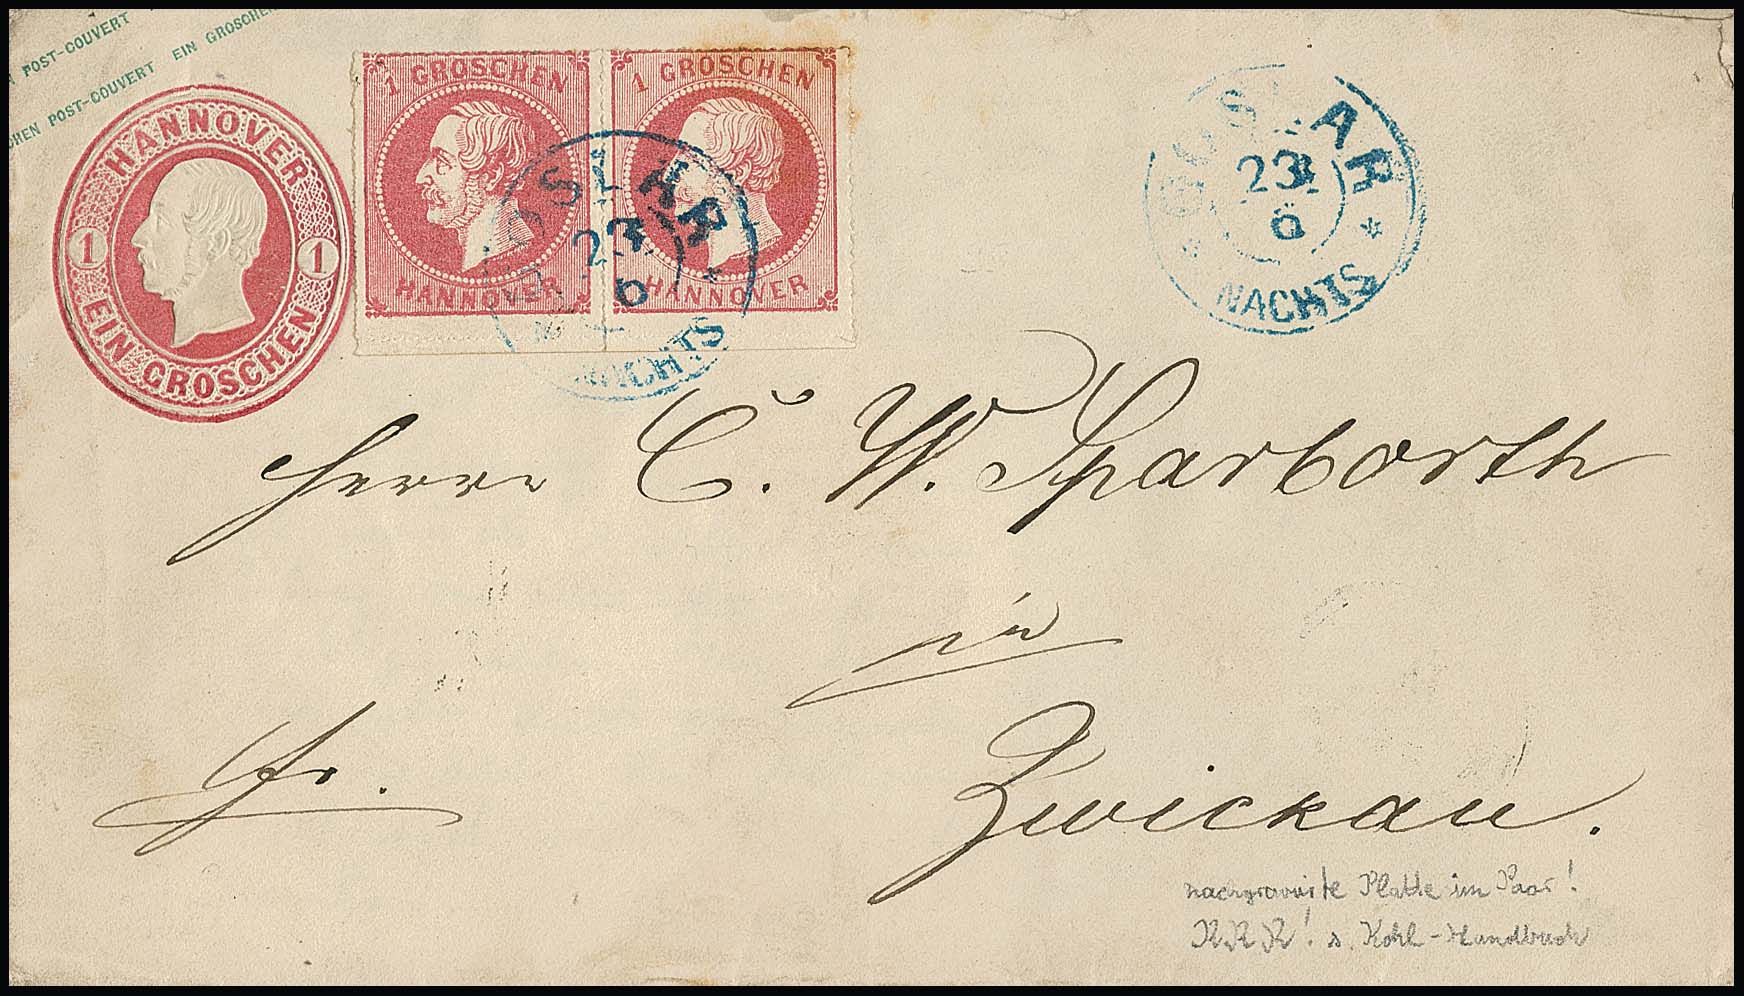 POST-COUVERT
POST-COUVERT EIN GROSCHEN
CHEN POST-COUVERT EIN GROSCHEN
HANNOVER
1 1
EIN GROSCHEN
1 GROSCHEN
HANNOVER
1 GROSCHEN
HANNOVER
GOSLAR
23
6
NACHTS
GOSLAR
23
6
NACHTS
Herrn C. W. Sparborth
in
fr.
Zwickau.
nachgravierte Platte im Paar!
RRR! s. Kohl-Handbuch